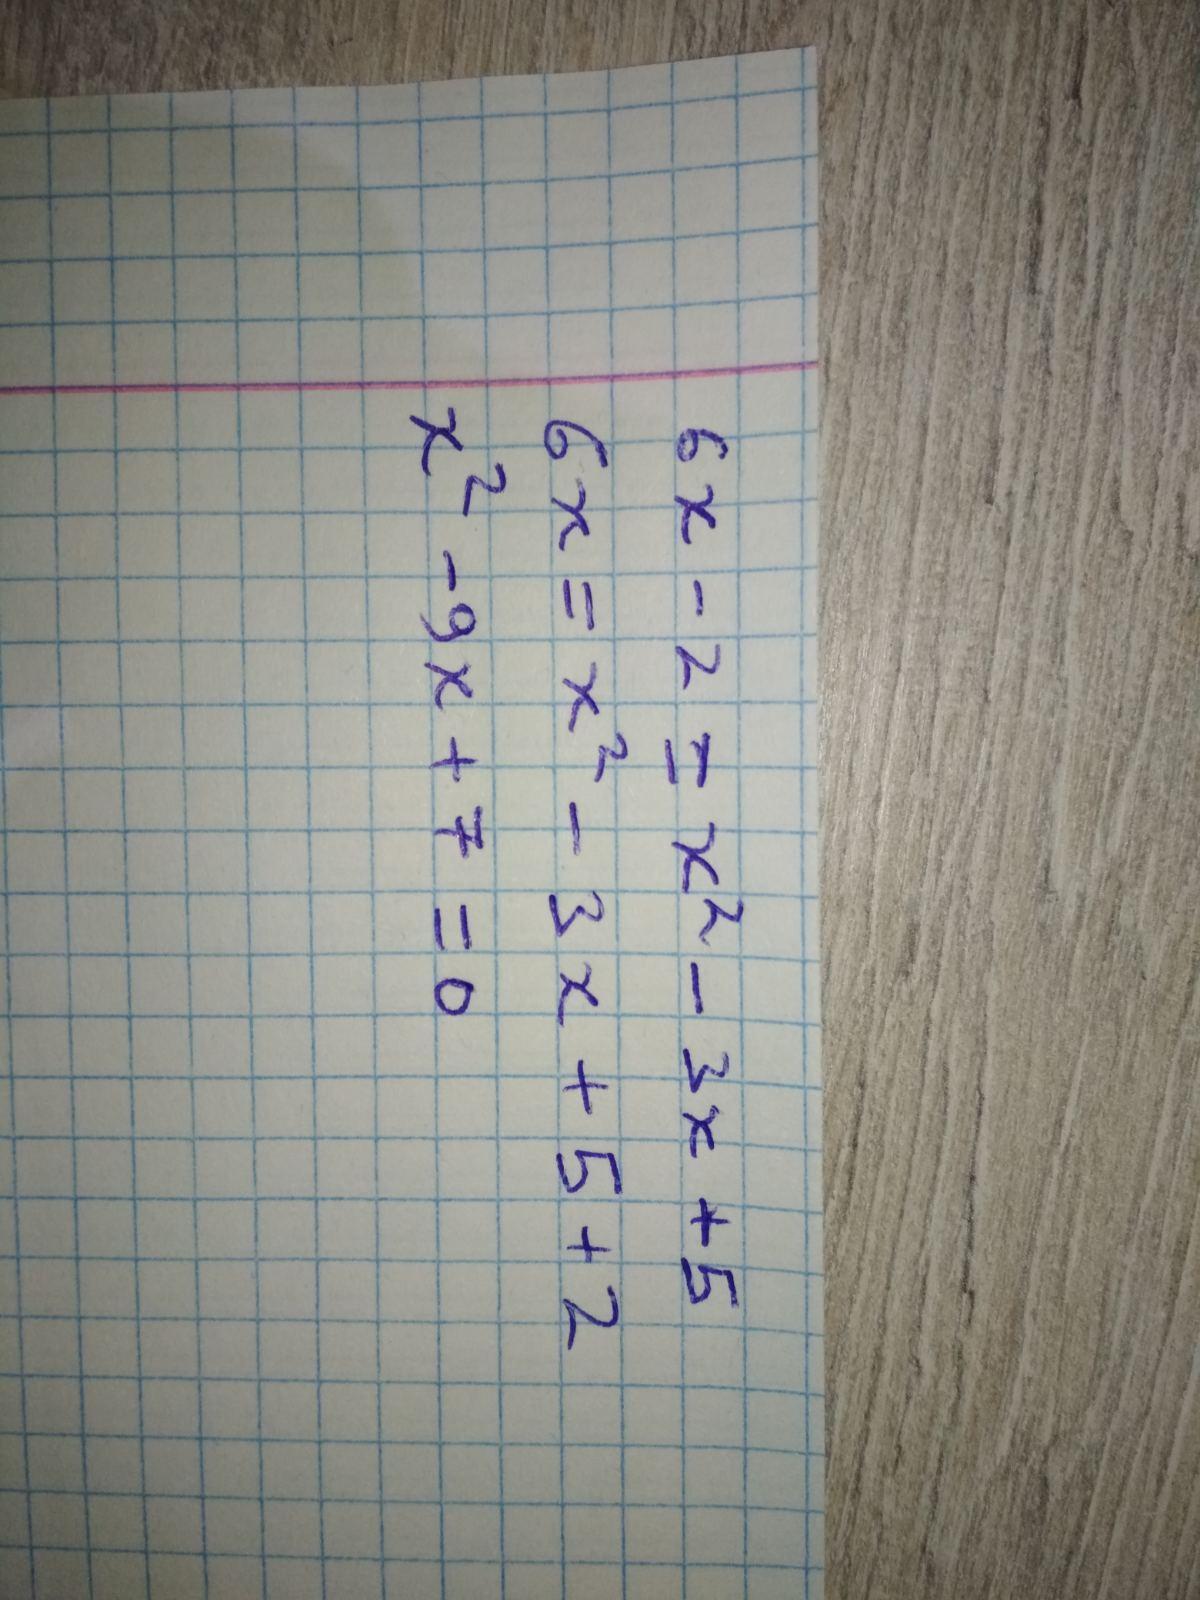 6x - 2 = x² - 3x + 5
6x = x² - 3x + 5 + 2
x² - 9x + 7 = 0